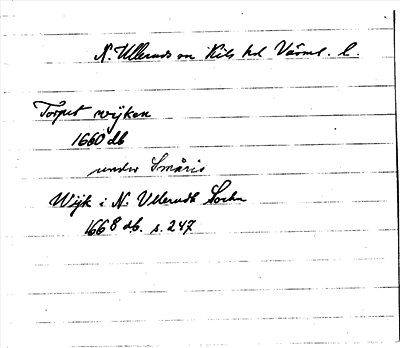 N. Ulleruds sn Kils hd Värml. l.
Torpet wijken
1660 db
under Småris
Wijk i N. Ulleruds Sochn
1668 db. s. 247